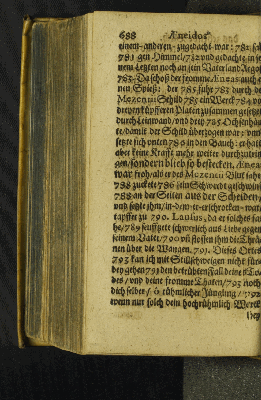 688 Æneidos
einem anderen zugedacht war: 781 sahe
781 gen Himmel/782 und gedachte in seinem
nem Letzten noch an sein Vaterland Argos.
783. Da schoß der fromme Æneas auch ei-
nen Spieß: der 785 fuhr 783 durch des
Mozentii Schild 783 ein Werck 784 von
dreyen küpfferen Platen zusammen gesetzt/
durch Leinwand/ und drey 785 Ochsenhäu-
te/ damit der Schild überzogen war: und
setzte sich unten 786 in den Bauch: er hatte
aber keine Krafft mehr weiter durchzudrin-
gen/ sondern blieb so bestecken. Æneas
war froh/ als er des Mozentii Blut sahe/
788 zuckete 786 sein Schwerdt geschwind
788 an der Seiten aus der Scheiden/
und setzte ihm/ in dem er erschrocken war/
tapffer zu 790. Lausus, da er solches sa-
he/ 789 seuffzete schwerlich aus Liebe gegen
seinem Vater/ 790 und stossen ihm die Thrä-
nen über die Wangen. 791. Dieses Ortes
793 kan ich mit Stillschweigen nicht für-
bey gehen 791 den betrübten Fall deines To-
des/ und deine fromme Thaten/ 793 noch
dich selber/ ô rühmlicher Jüngling/ 792
wenn nur solch dein hochrühmlich Werck